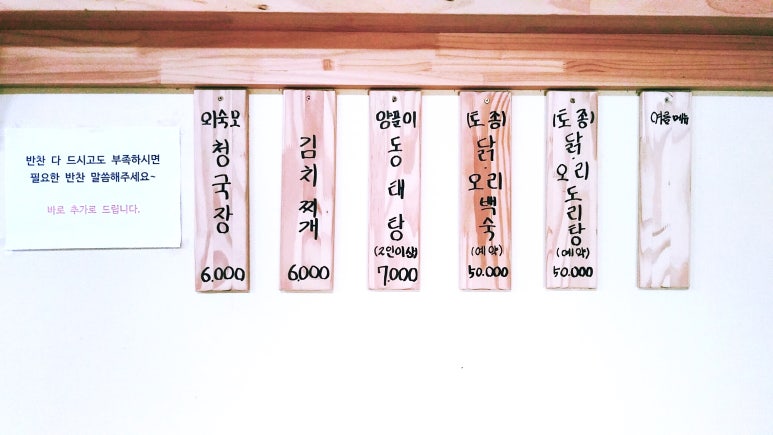 반찬 다 드시고도 부족하시면
필요한 반찬 말씀해주세요~
바로 추가로 드립니다.
외숙모
청국장
6.000
김치찌개
6,000
얌꼴이
동태탕
(2인이상)
7,000
(토종)
닭·오리백숙
(예약)
50.000
(토종)
닭·오리도리탕
(예약)
50.000
여름메뉴